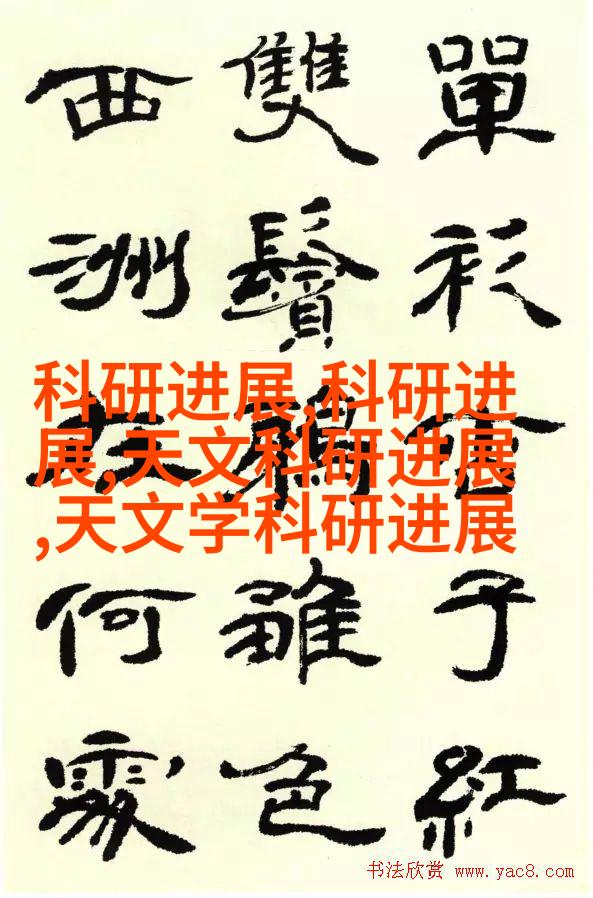 單衫子紅
雙鬢雛色
西洲在何處
科研进展,科研进
展,天文科研进展
,天文学科研进展
书法欣赏 www.yac8.com